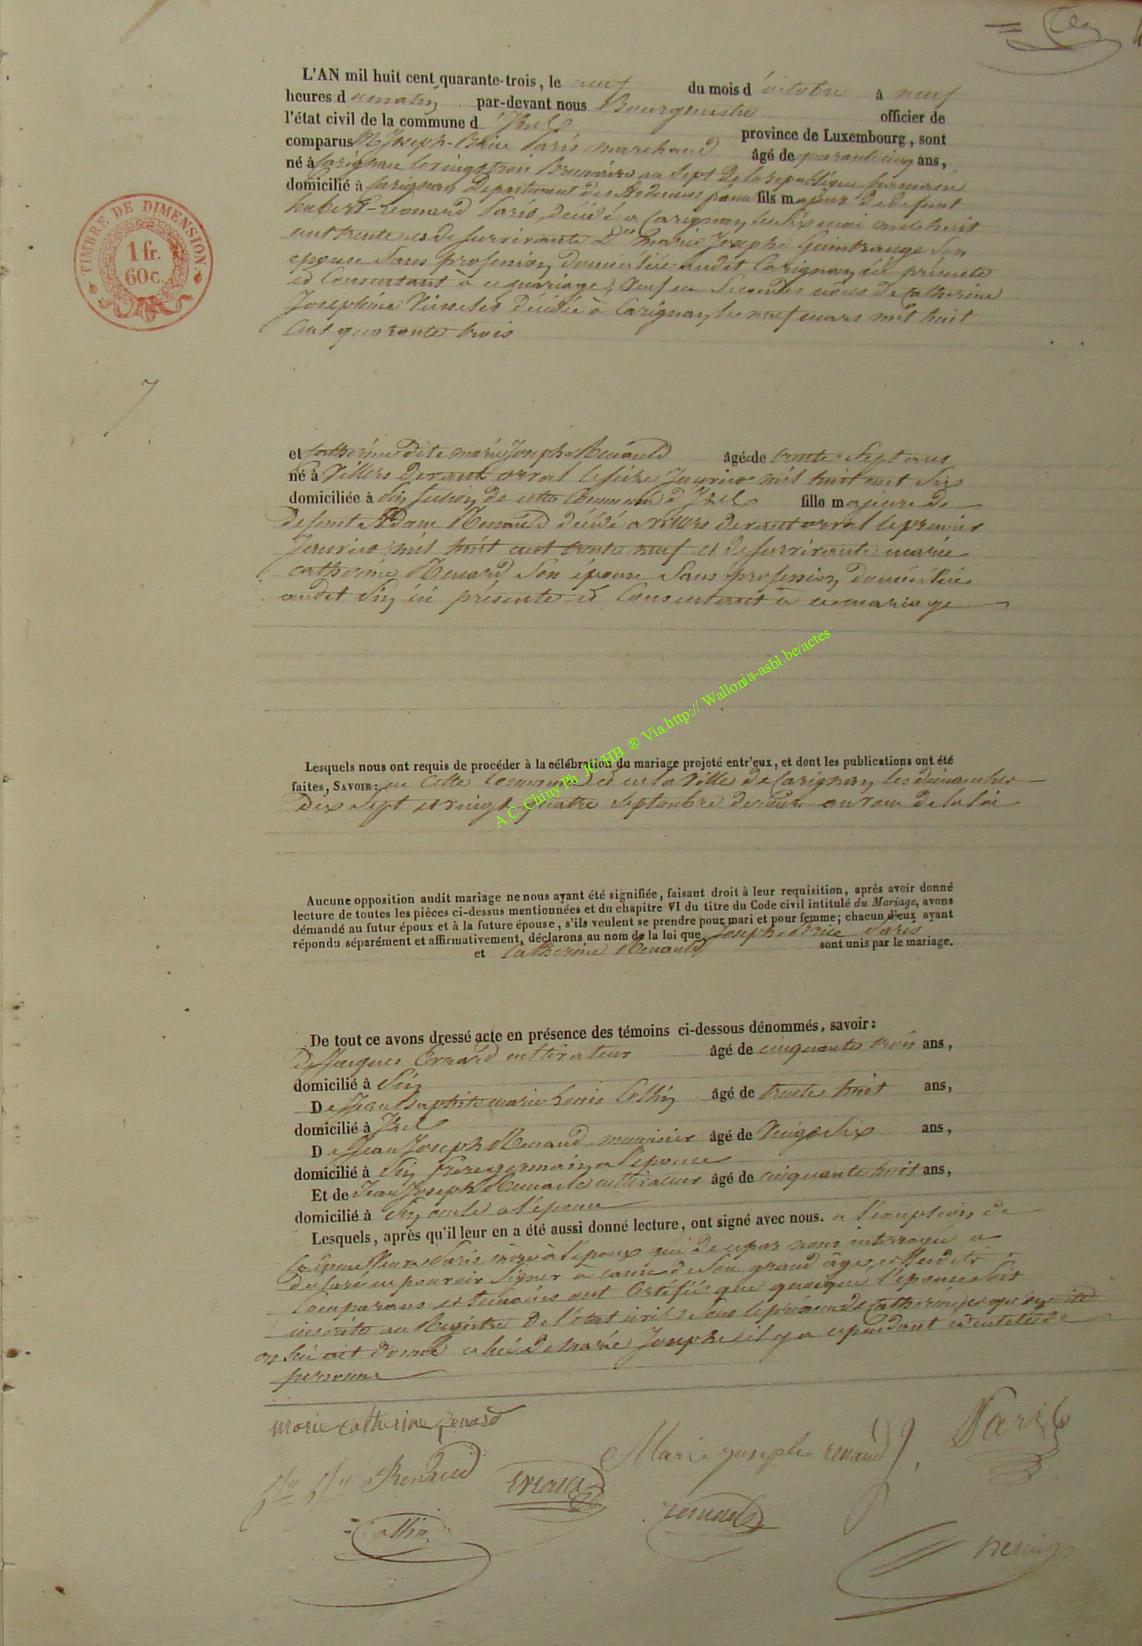 L'AN mil huit cent quarante-trois, le neuf du mois d'octobre à neuf
heures du matin par-devant nous Bourgmestre officier de
l'état civil de la commune d'Izel province de Luxembourg, sont
comparus Mr Joseph-Brice Paris marchand âgé de quarante cinq ans,
né à Carignan le vingt trois Brumaire an Sept de la republique francaise
domicilié à Carignan Departement des Ardennes fils majeur de defunt
hubert-Leonard Paris, décédé a Carignan le Six mai mil huit
cent trente et de Survivante De marie Josephe Guintrange Son
epouse Sans profession domiciliée audit Carignan ici présente
et Consentant à ce mariage, Veuf en Secondes noces de Catherine
Josephine décédée à Carignan le neuf mars mil huit
Cent quarante trois
7
et Catherine dite marie Joseph Renauld âgé de trente Sept ans
né à Villers devant orval le seize Janvier mil huit cent Six
domiciliée à Sin Section de cette Commune d'Izel fille majeure de
defunt Adam Renauld décédé a villers devant orval le premier
Janvier mil huit cent trente neuf et de Survivante marie
catherine Renard Son épouse Sans profession domiciliée
audit Sin ici présente et Consentant à ce mariage
Lesquels nous ont requis de procéder à la célébration du mariage projeté entr'eux, et dont les publications ont été
faites, SAVOIR: en Cette Commune et en la Ville de Carignan les dimanches
Dix Sept et vingt quatre Septembre dernier au vœu de la loi
Aucune opposition audit mariage ne nous ayant été signifiée, faisant droit à leur requisition, après avoir donné
lecture de toutes les pièces ci-dessus mentionnées et du chapitre VI du titre du Code civil intitulé du Mariage, avons
démandé au futur époux et à la future épouse, s'ils veulent se prendre pour mari et pour femme; chacun d'eux ayant
répondu séparément et affirmativement, déclarons au nom de la loi que Joseph-Brice Paris
et Catherine Renauld sont unis par le mariage.
De tout ce avons dressé acte en présence des témoins ci-dessous dénommés, savoir:
De Jacques Evrard cultivateur âgé de cinquante trois ans,
domicilié à Sin
De Jean Baptiste marie Louis Collin âgé de trente huit ans,
domicilié à Izel
De Jean Joseph Renaud menuisier âgé de Vingt Six ans,
domicilié à Sin frere germain a l'épouse
Et de Jean Joseph cultivateur âgé de cinquante huit ans,
domicilié à Sin oncle a l'épouse
Lesquels, après qu'il leur en a été aussi donné lecture, ont signé avec nous. a l'exception de
la Dame Veuve Paris mère à l'époux qui de ce par nous interrogée a
declaré ne pouvoir Signer à cause de Son grand âge, et lesdits
Comparans et temoins ont Certifié que quoique l'épouse Soit
inscrite au Registre de l'état civil Sous le prénom de Catherine, et qu'ensuite
on lui ait donné celui de marie Josephe il y a cependant identité de
personne
marie catherine Renard
Renauld
Evrard
Marie josephe renaud
Paris
Collin
TIMBRE DE DIMENSION
1 fr.
60 c.
A C. Chiny Ph JC HB ® Via http:// Wallonia-asbl.be/actes